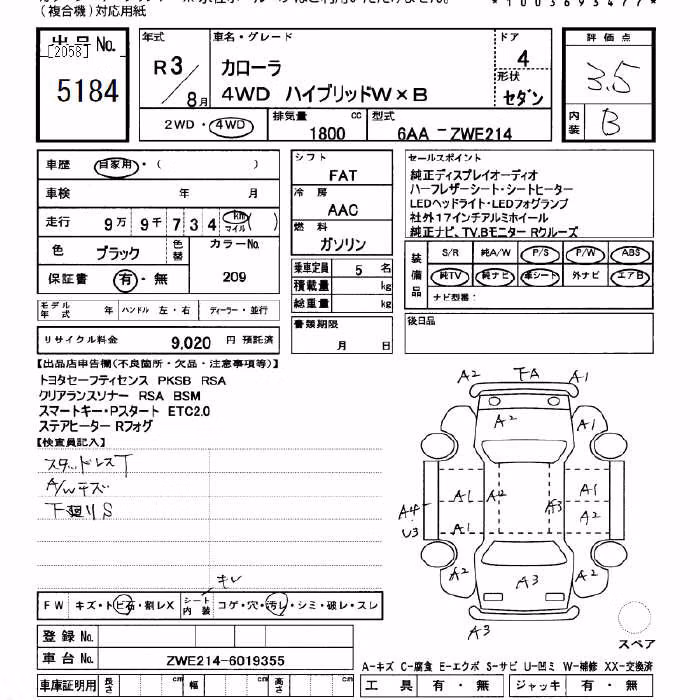 (複合機)対応用紙
*1003693477*
出品No.
[2058]
5184
年式
R3/8月
車名・グレード
カローラ
4WD ハイブリッドW×B
ドア
4
形状
セダン
評価点
3.5
内装
B
2WD・4WD
排気量
1800 cc
型式
6AA－ZWE214
車歴 自家用・( )
車検 年 月
走行 9万9千734 km マイル ( )
色 ブラック 色替 カラーNo.
209
保証書 有・無
シフト
FAT
冷房
AAC
燃料
ガソリン
乗車定員 5名
積載量 kg
総重量 kg
セールスポイント
純正ディスプレイオーディオ
ハーフレザーシート・シートヒーター
LEDヘッドライト・LEDフォグランプ
社外17インチアルミホイール
純正ナビ、TV.Bモニター Rクルーズ
装備品
S/R 純A/W P/S P/W ABS
純TV 純ナビ 革シート 外ナビ エアB
ナビ型番:
モデル年式 年 ハンドル 左・右 ディーラー・並行
書類期限
月 日
後日品
リサイクル料金 9,020 円 預託済
【出品店申告欄(不良箇所・欠品・注意事項等)】
トヨタセーフティセンス PKSB RSA
クリアランスソナー RSA BSM
スマートキー・Pスタート ETC2.0
ステアヒーター Rフォグ
【検査員記入】
スタッドレスT
A/Wキズ
下廻りS
A2 FA A1
A2
A1
A1 A2 A3 A1
A4 U3
A1 A2
A2 A3 A2
A3
スペア
キレ
FW キズ・トビ石・割レX シート内装 コゲ・穴・汚レ・シミ・破レ・スレ
登録No.
車台No. ZWE214-6019355
A-キズ C-腐食 E-エクボ S-サビ U-凹ミ W-補修 XX-交換済
車庫証明用 長さ cm 幅 cm 高さ cm
工具 有・無 ジャッキ 有・無